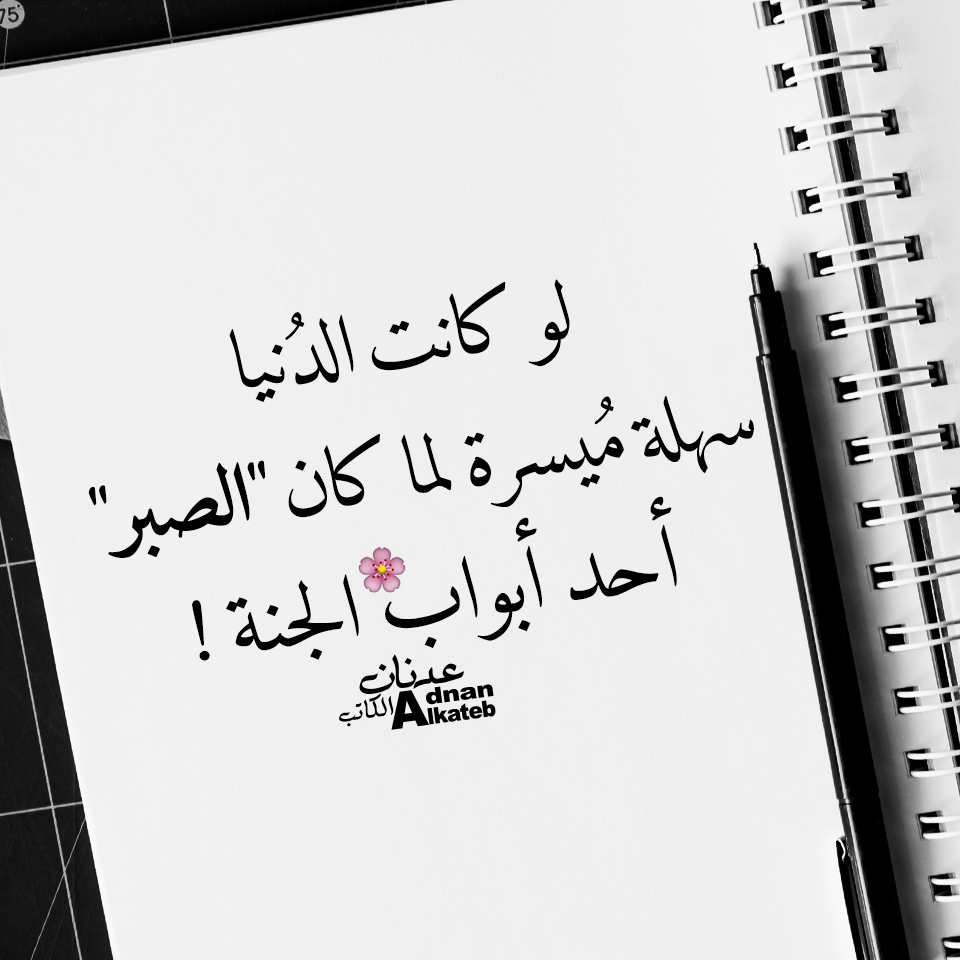 75°
لو كانت الدُنيا
سهلة مُيسرة لما كان "الصبر"
أحد أبواب الجنة !
عدنان
الكاتب
Adnan
Alkateb